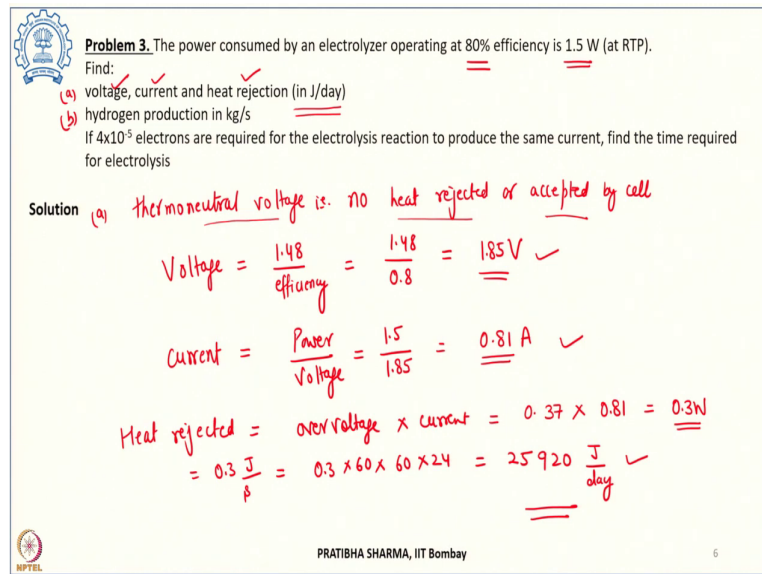 Problem 3. The power consumed by an electrolyzer operating at 80% efficiency is 1.5 W (at RTP).
Find:
(a) voltage, current and heat rejection (in J/day)
(b) hydrogen production in kg/s
If 4x10⁻⁵ electrons are required for the electrolysis reaction to produce the same current, find the time required
for electrolysis
Solution (a) thermoneutral voltage is. no heat rejected or accepted by cell
Voltage = 1.48/efficiency = 1.48/0.8 = 1.85V
Current = Power/Voltage = 1.5/1.85 = 0.81 A
Heat rejected = overvoltage x current = 0.37 x 0.81 = 0.3W
= 0.3 J/s = 0.3 x 60 x 60 x 24 = 25920 J/day
NPTEL
PRATIBHA SHARMA, IIT Bombay
6